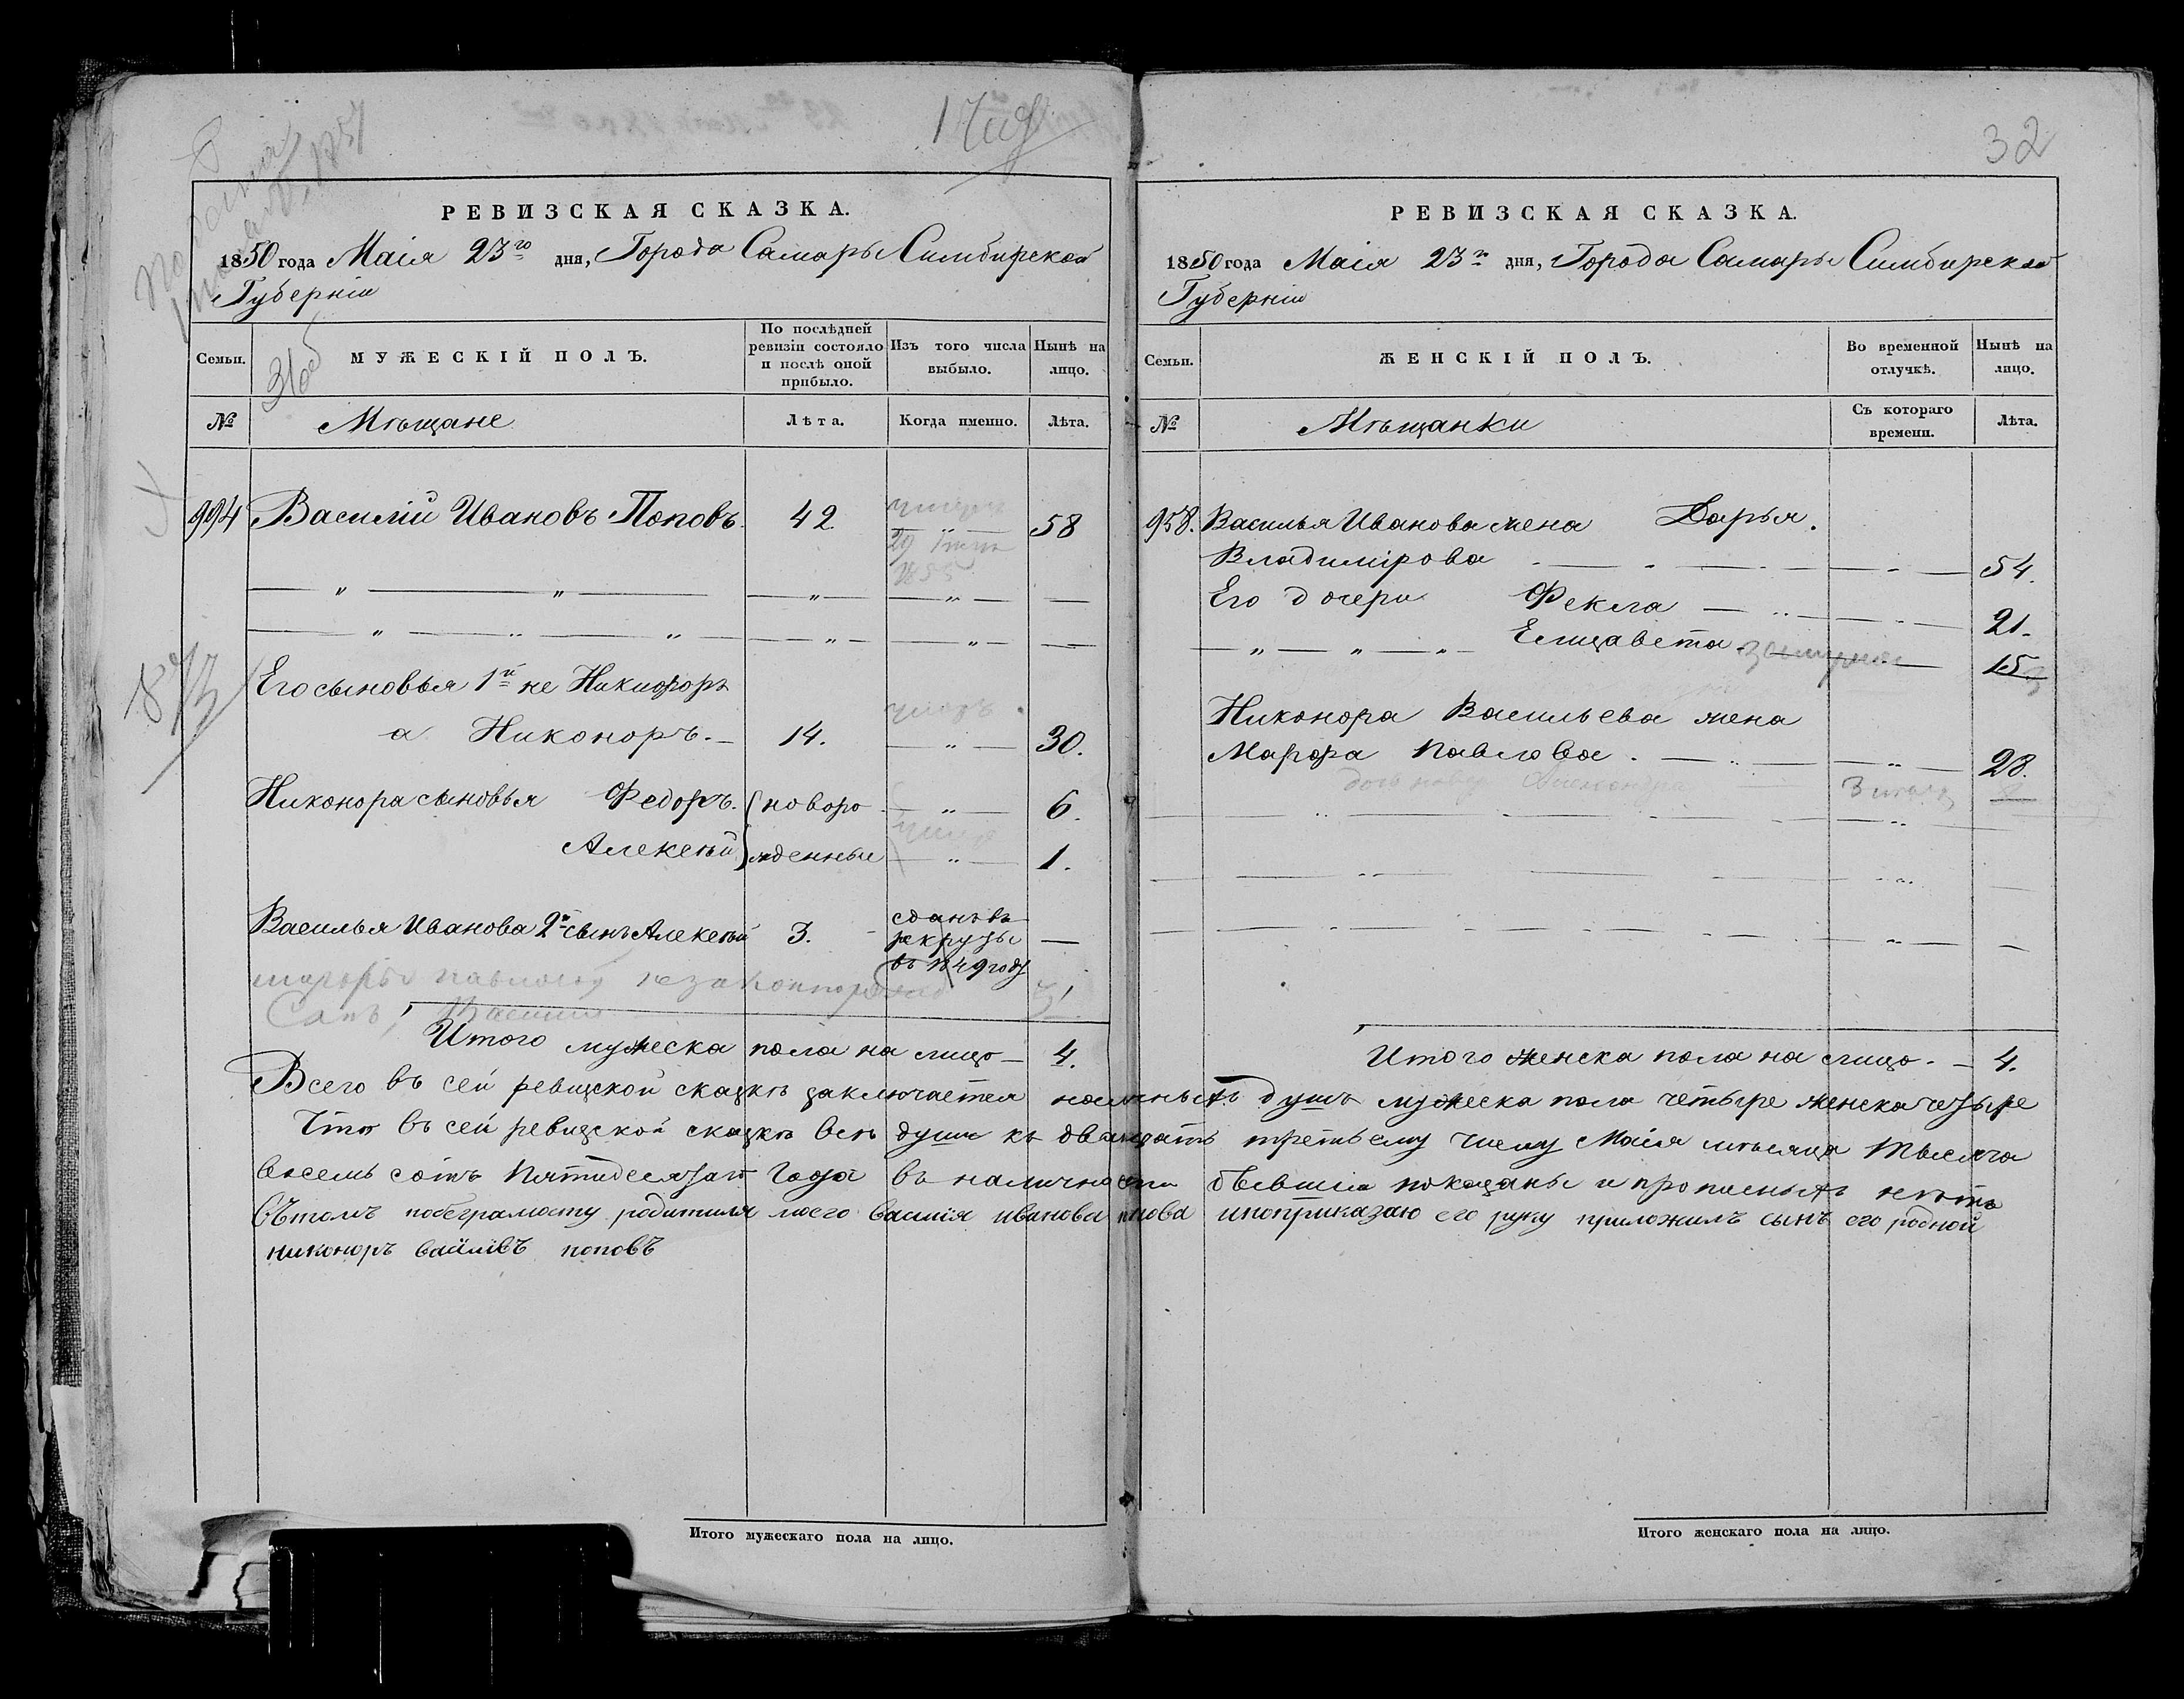 32
РЕВИЗСКАЯ СКАЗКА.
1850 года Маія 23го дня, Города Самары Симбирской
Губерніи
Семьи.
МУЖЕСКІЙ ПОЛЪ.
По послѣдней
ревизіи состояло
и послѣ оной
прибыло.
Изъ того числа
выбыло.
Нынѣ на
лицо.
№
Мѣщане
Лѣта.
Когда именно.
Лѣта.
994 Василій Ивановъ Поповъ. 42. 58
Его сыновья 1й не Никифоръ
а Никоноръ. 14. 30.
Никонора сыновья Федоръ. (новоро 6.
Алексѣй) жденные 1.
сданъ въ
Василья Иванова 2й сынъ Алексѣй 3. рекруты —
въ 1849 году
Итого мужеска пола на лицо — 4.
РЕВИЗСКАЯ СКАЗКА.
1850 года Маія 23го дня, Города Самары Симбирской
Губерніи
Семьи.
ЖЕНСКІЙ ПОЛЪ.
Во временной
отлучкѣ.
Нынѣ на
лицо.
№
Мѣщанки
Съ котораго
времени.
Лѣта.
958. Василья Иванова жена Дарья.
Владимірова 54.
Его дочери Фекла 21.
Елизавета 15
Никонора Васильева жена
Марфа Павлова. 28.
Итого женска пола на лицо. — 4.
Всего въ сей ревизской сказкѣ заключается наличныхъ душъ мужеска пола четыре женска четыре
Что въ сей ревизской сказкѣ всѣ души къ двадцать третьему числу Маія мѣсяца тысяча
восемь сотъ пятидесятаго года въ наличности бывшія показаны и прописныхъ нѣтъ
вътомъ побеграмоту родителя моего василія иванова попова ипоприказаю его руку приложилъ сынъ его родной
никоноръ поповъ
Итого мужескаго пола на лицо.
Итого женскаго пола на лицо.